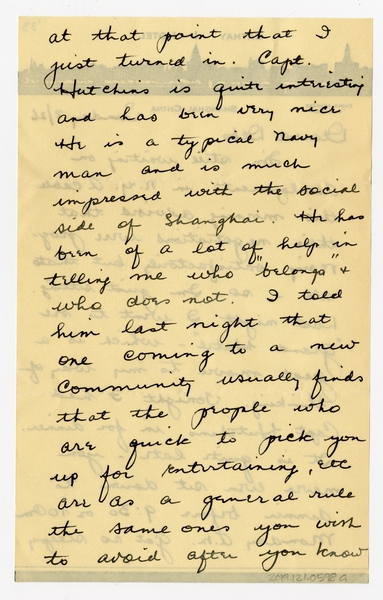 at that point that I
just turned in. Capt.
Hutchins is quite interesting
and has been very nice
He is a typical Navy
man and is much
impressed with the social
side of Shanghai. He has
been of a lot of help in
telling me who "belongs" +
who does not. I told
him last night that
one coming to a new
Community usually finds
that the people who
are quick to pick you
up for entertaining, etc
are as a general rule
the same ones you wish
to avoid after you know
2019.121.0598a